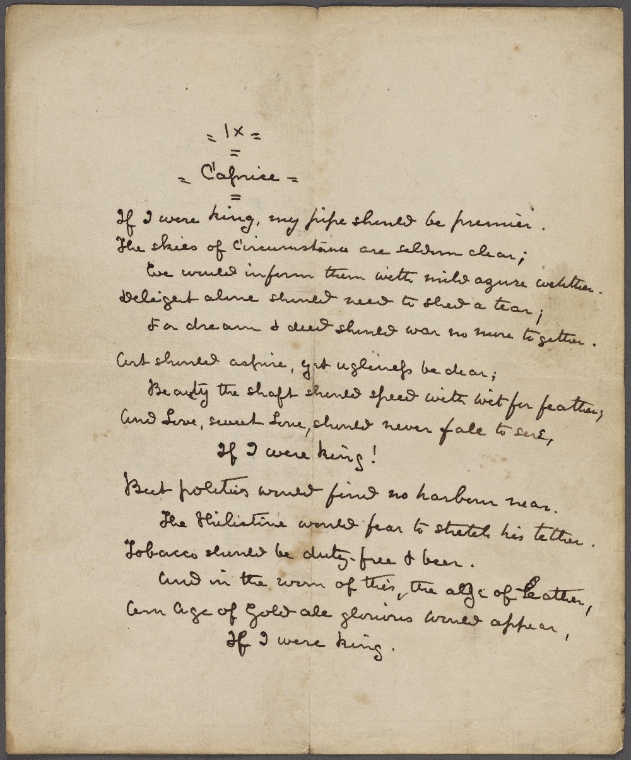 = IX =
=
= Caprice =
=
If I were king, my pipe should be premier.
The skies of Circumstance are seldom clear;
We would inform them with mild azure weather.
Delight alone should need to shed a tear;
For dream & deed should war no more together.
Art should aspire, yet ugliness be dear;
Beauty the shaft should speed with wit for feather;
And Love, sweet Love, should never fale to sere,
If I were king!
But politics would find no harbour near.
The Philistine would fear to stretch his tether.
Tobacco should be duty-free & beer.
And in the room of this, the age of Leather,
An Age of Gold all glorious would appear,
If I were king.